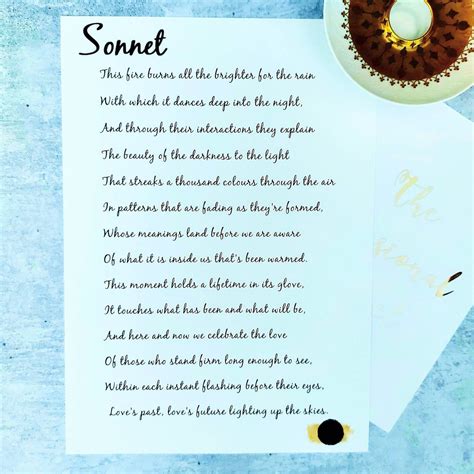 Sonnet
This fire burns all the brighter for the rain
With which it dances deep into the night,
And through their interactions they explain
The beauty of the darkness to the light
That streaks a thousand colours through the air
In patterns that are fading as they're formed,
Whose meanings land before we are aware
Of what it is inside us that's been warmed.
This moment holds a lifetime in its glove,
It touches what has been and what will be,
And here and now we celebrate the love
Of those who stand firm long enough to see,
Within each instant flashing before their eyes,
Love's past, love's future lighting up the skies.
the